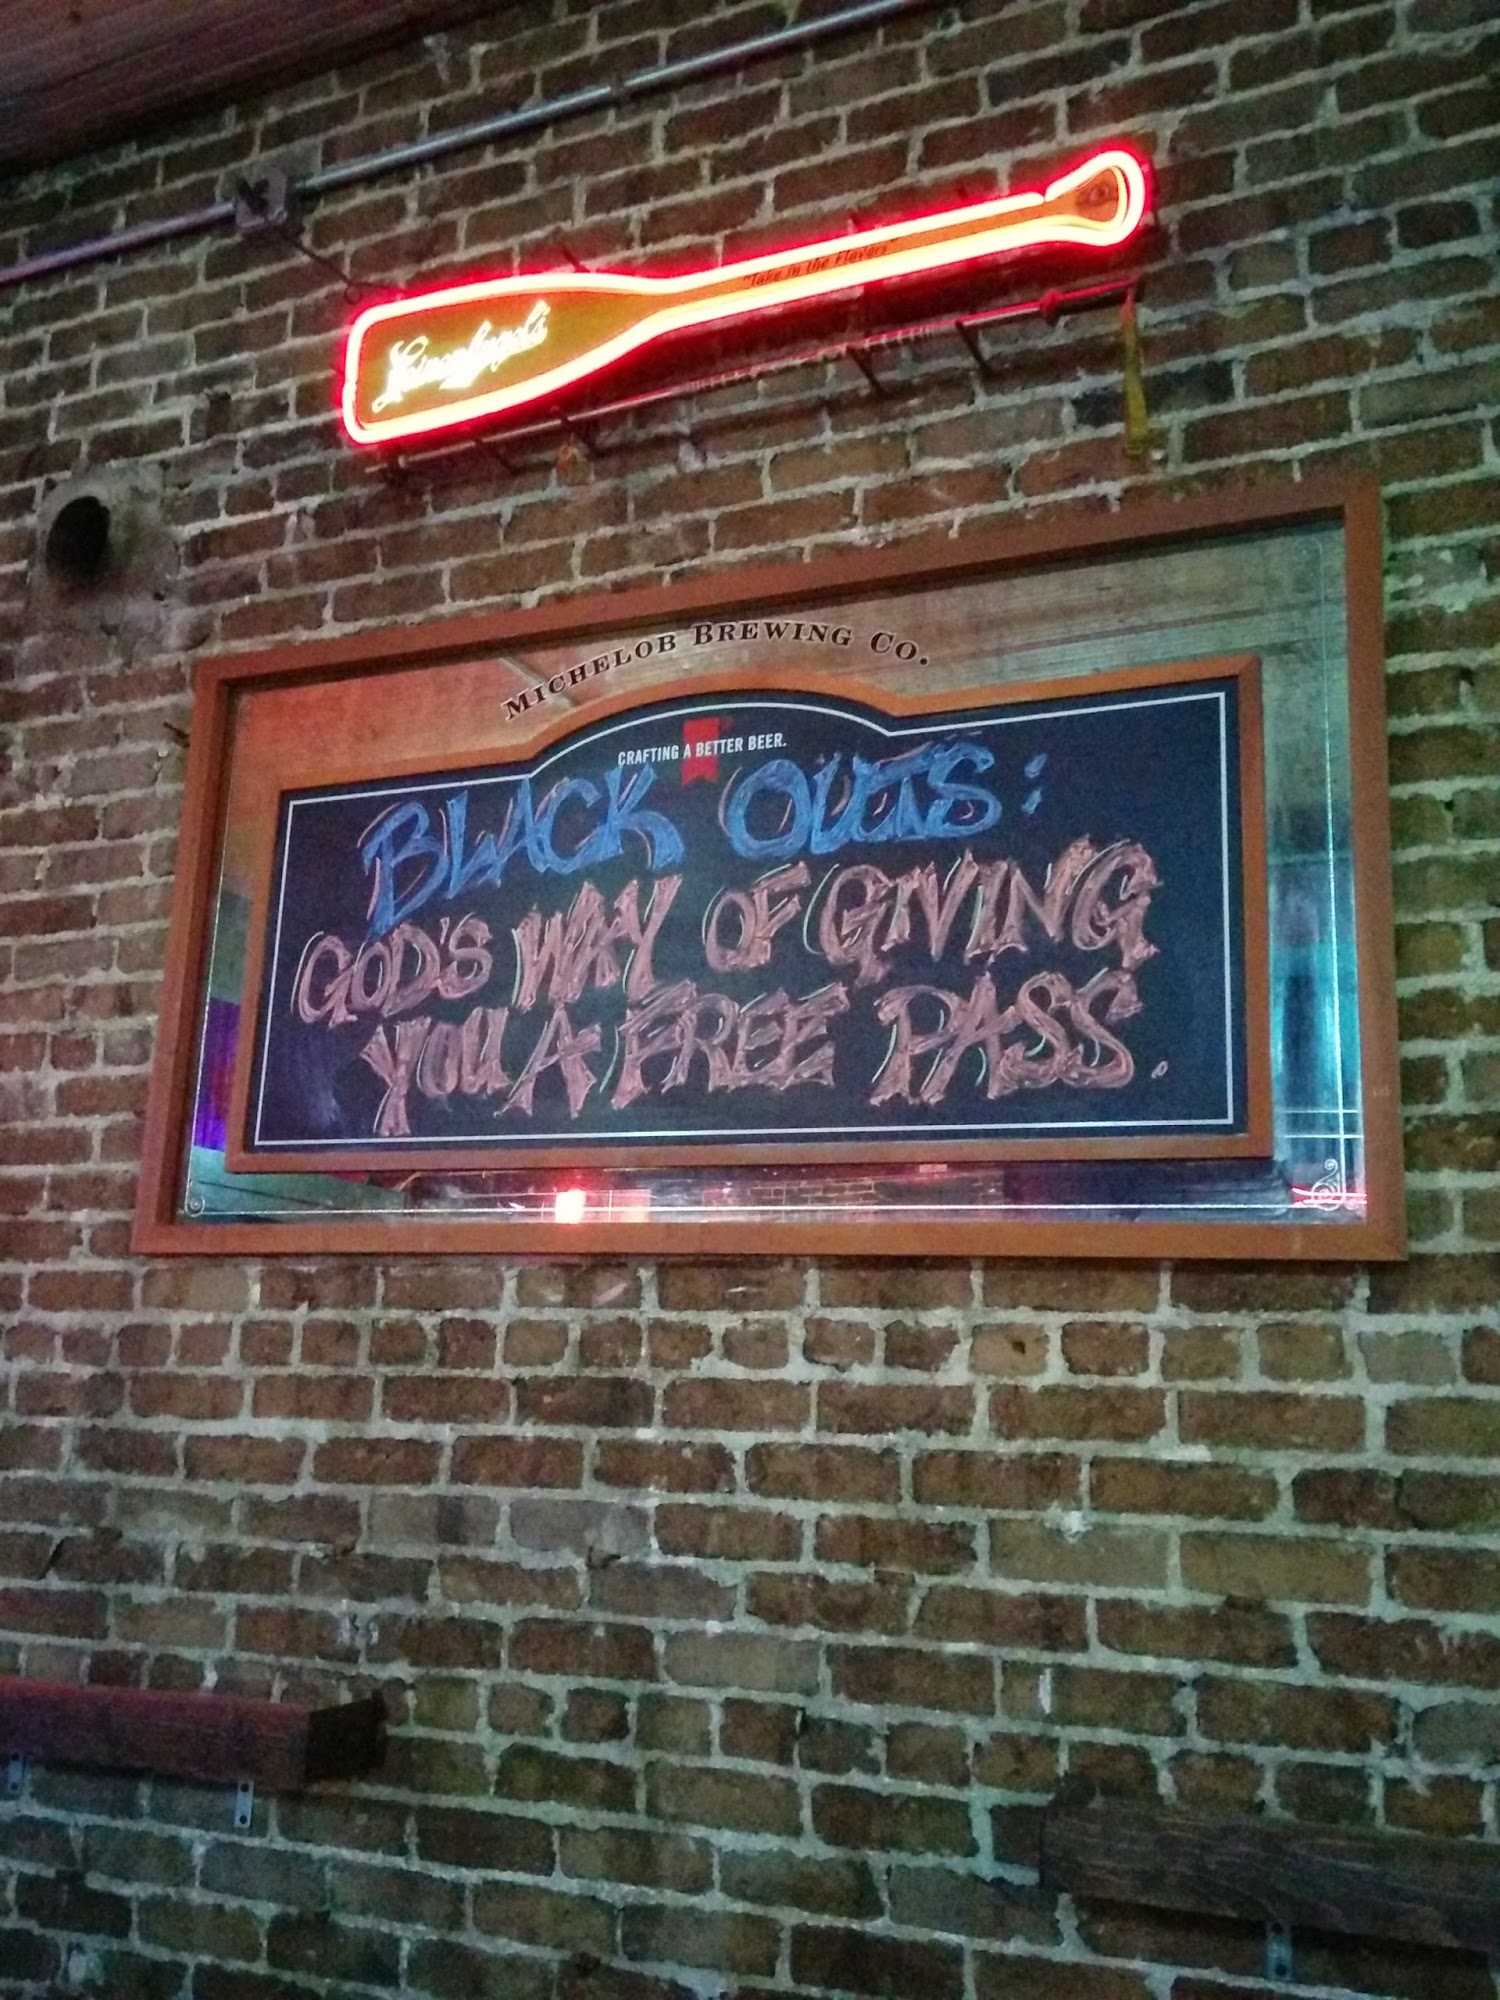 Leinenkugel's
"Take in the Flavors"
MICHELOB BREWING CO.
CRAFTING A BETTER BEER.
BLACK OUTS:
GOD'S WAY OF GIVING
YOU A FREE PASS.